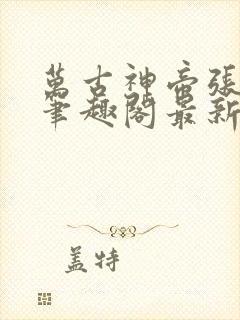 萬古神帝張
筆趣閣最新
蓋特